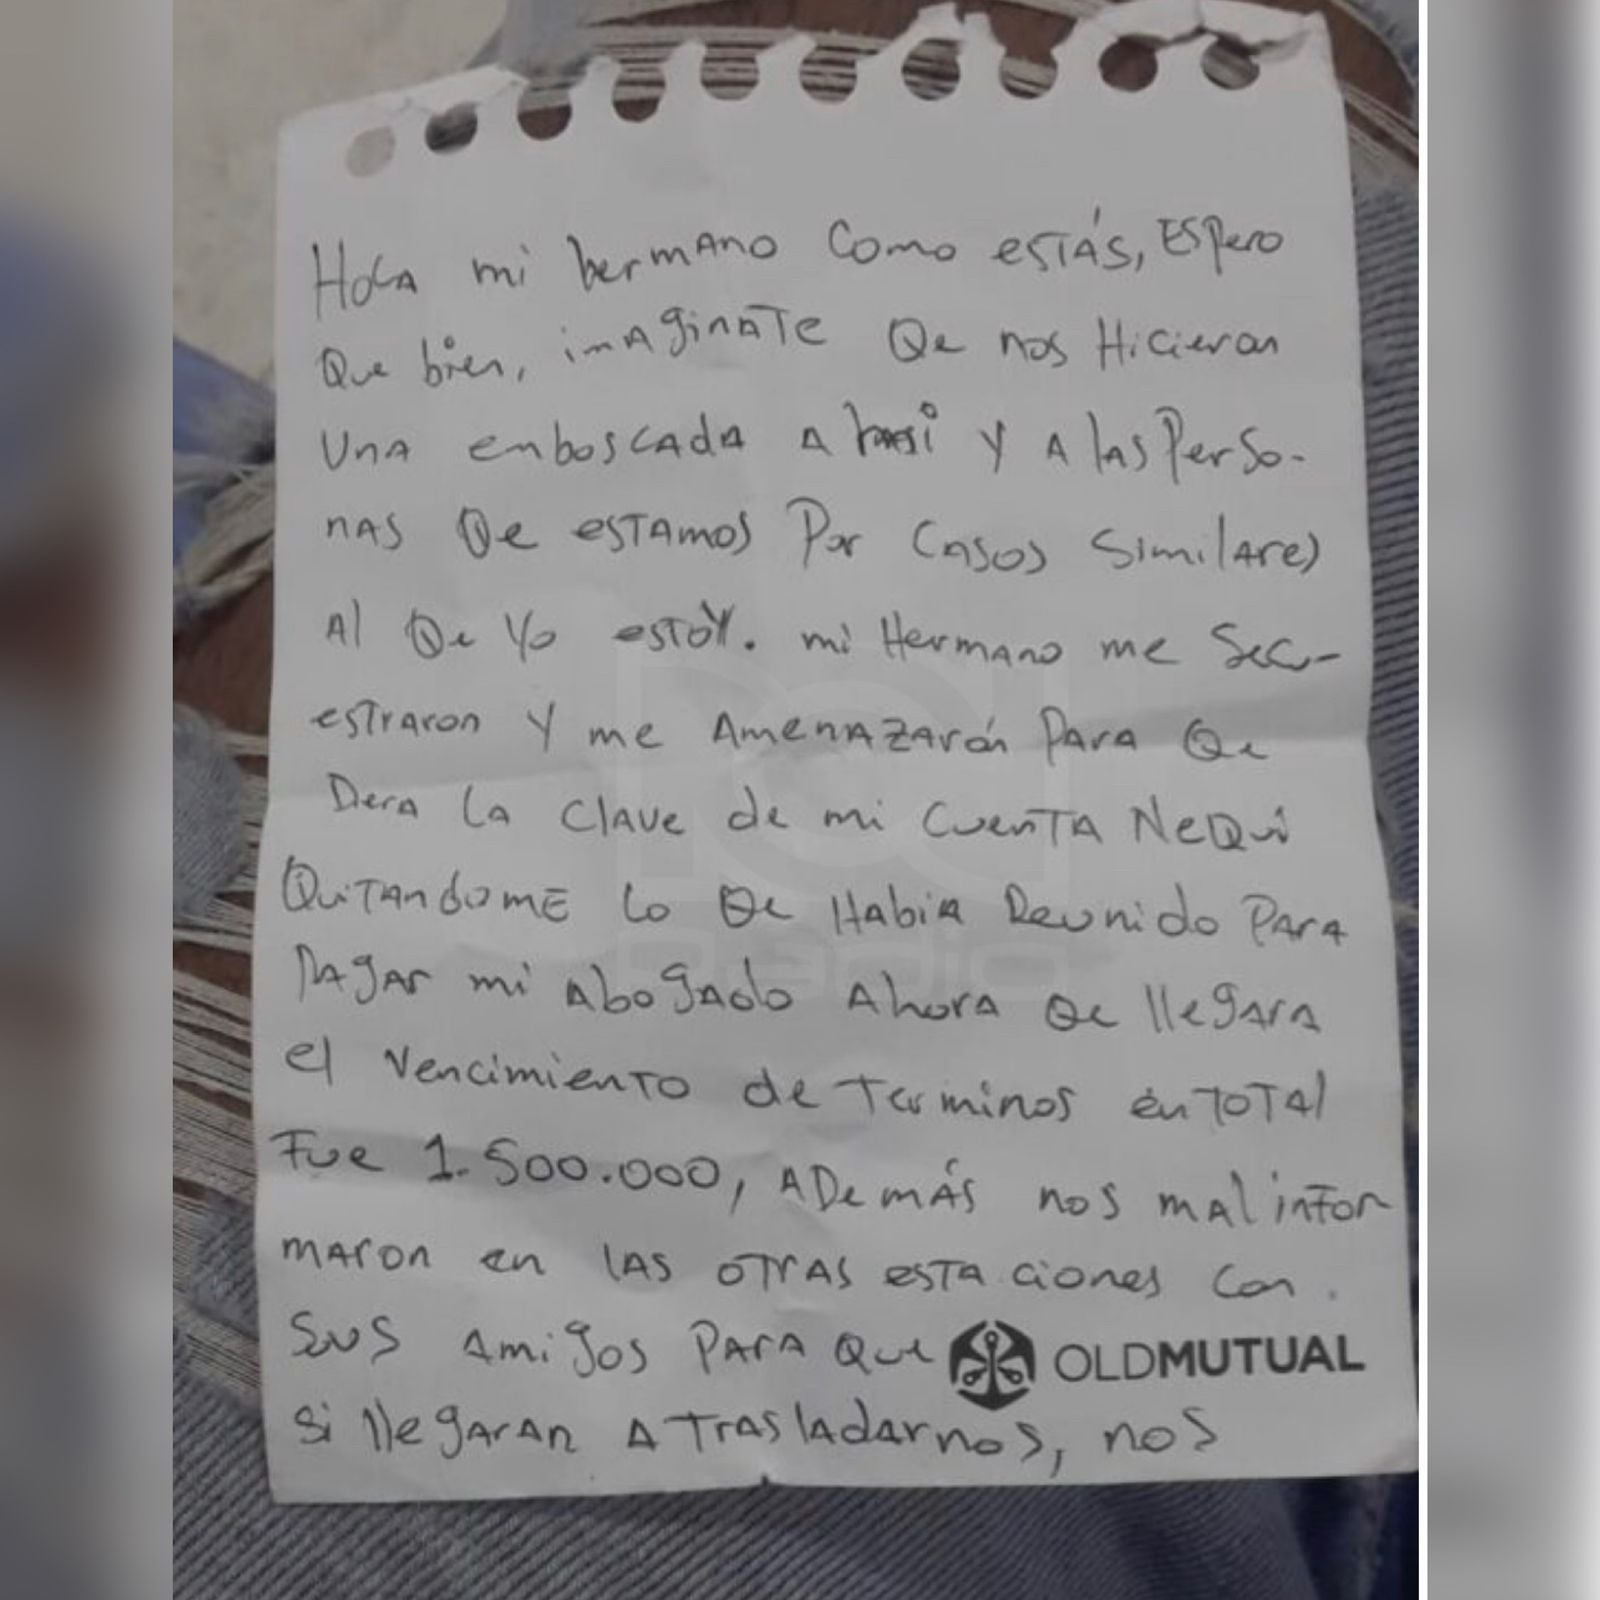 Hola mi hermano como estás, espero
que bien, imaginate Qe nos Hicieron
una emboscada a mi y a las perso-
nas Qe estamos por casos similares
al Qe yo estoy. mi Hermano me secu-
estraron y me amenazarón para Qe
Dera la clave de mi cuenta NeQui
Quitandome lo Qe Habia Reunido para
pagar mi abogado ahora Qe llegara
el vencimiento de terminos en total
Fue 1.500.000, además nos mal infor
maron en las otras estaciones con
sus amigos para que
OLDMUTUAL
si llegaran a trasladarnos, nos
RCN
Radio